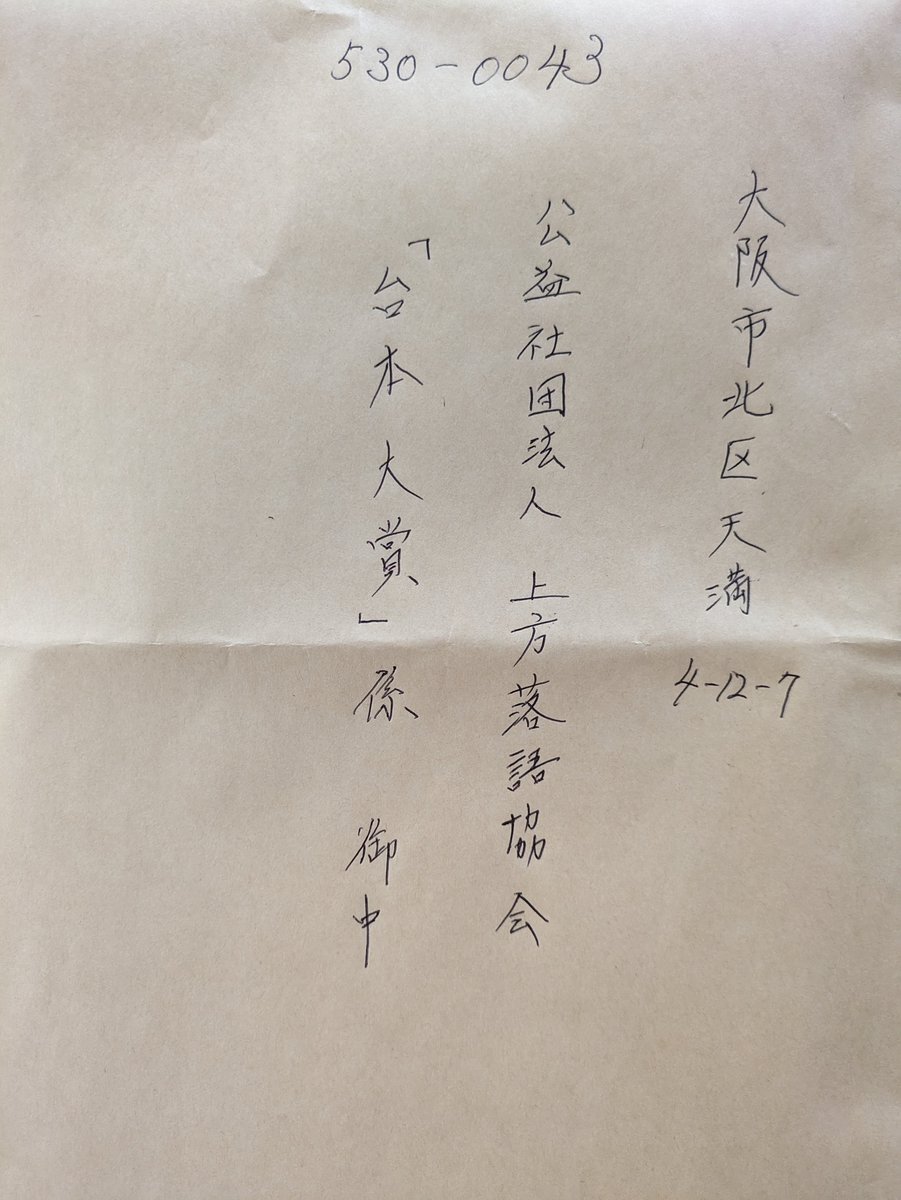 530-0043
大阪市北区天満 4-12-7
公益社団法人 上方落語協会
「台本大賞」係 御中